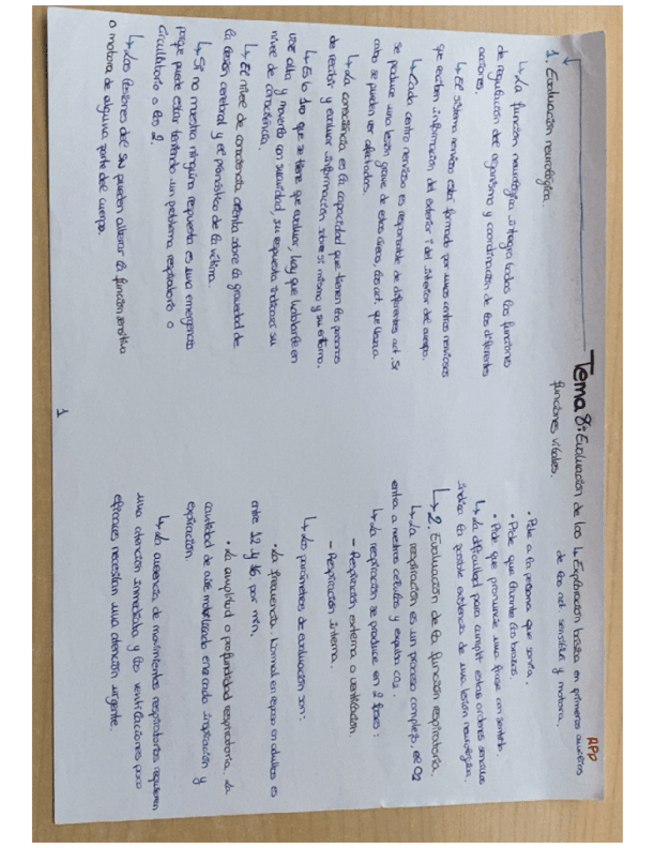 APP
Tema 8: Evaluación de las
funciones vitales.
1. Evaluación neurológica.
↳ La función neurológica integra todas las funciones
de regulación del organismo y coordinación de las diferentes
acciones.
↳ El sistema nervioso está formado por unos centros nerviosos
que reciben información del exterior i del interior del cuerpo.
↳ Cada centro nervioso es responsable de diferentes act. Si
se produce una lesión grave de estas áreas, las act. que lleva a
cabo se pueden ver afectadas.
↳ La consciencia es la capacidad que tienen las personas
de recibir y evaluar información sobre sí mismo y su entorno.
↳ Es lo 1ro que se tiene que evaluar, hay que hablarle en
voz alta y moverlo con suavidad, su respuesta indicará su
nivel de consciencia.
↳ El nivel de consciencia orienta sobre la gravedad de
la lesión cerebral y el pronóstico de la víctima.
↳ Si no muestra ninguna respuesta es una emergencia
porque puede estar teniendo un problema respiratorio o
circulatorio o los 2.
↳ Las lesiones del SN pueden alterar la función sensitiva
o motora de alguna parte del cuerpo.
1
↳ Exploración básica en primeros auxilios
de las act. sensitiva y motora.
• Pide a la persona que sonría.
• Pide que levante los brazos.
• Pide que pronuncie una frase con sentido.
↳ La dificultad para cumplir estas órdenes sencillas
indica la posible existencia de una lesión neurológica.
↳ 2. Evaluación de la función respiratoria.
↳ La respiración es un proceso complejo, el O2
entra a nuestras células y expulsa CO2.
↳ La respiración se produce en 2 fases:
- Respiración externa o ventilación.
- Respiración interna.
↳ Los parámetros de evaluación son:
• La frecuencia. Normal en reposo en adultos es
entre 12 y 16 por min.
• La amplitud o profundidad respiratoria. La
cantidad de aire movilizado en cada inspiración y
espiración.
↳ La ausencia de movimientos respiratorios requieren
una atención inmediata y las ventilaciones poco
eficaces necesitan una atención urgente.